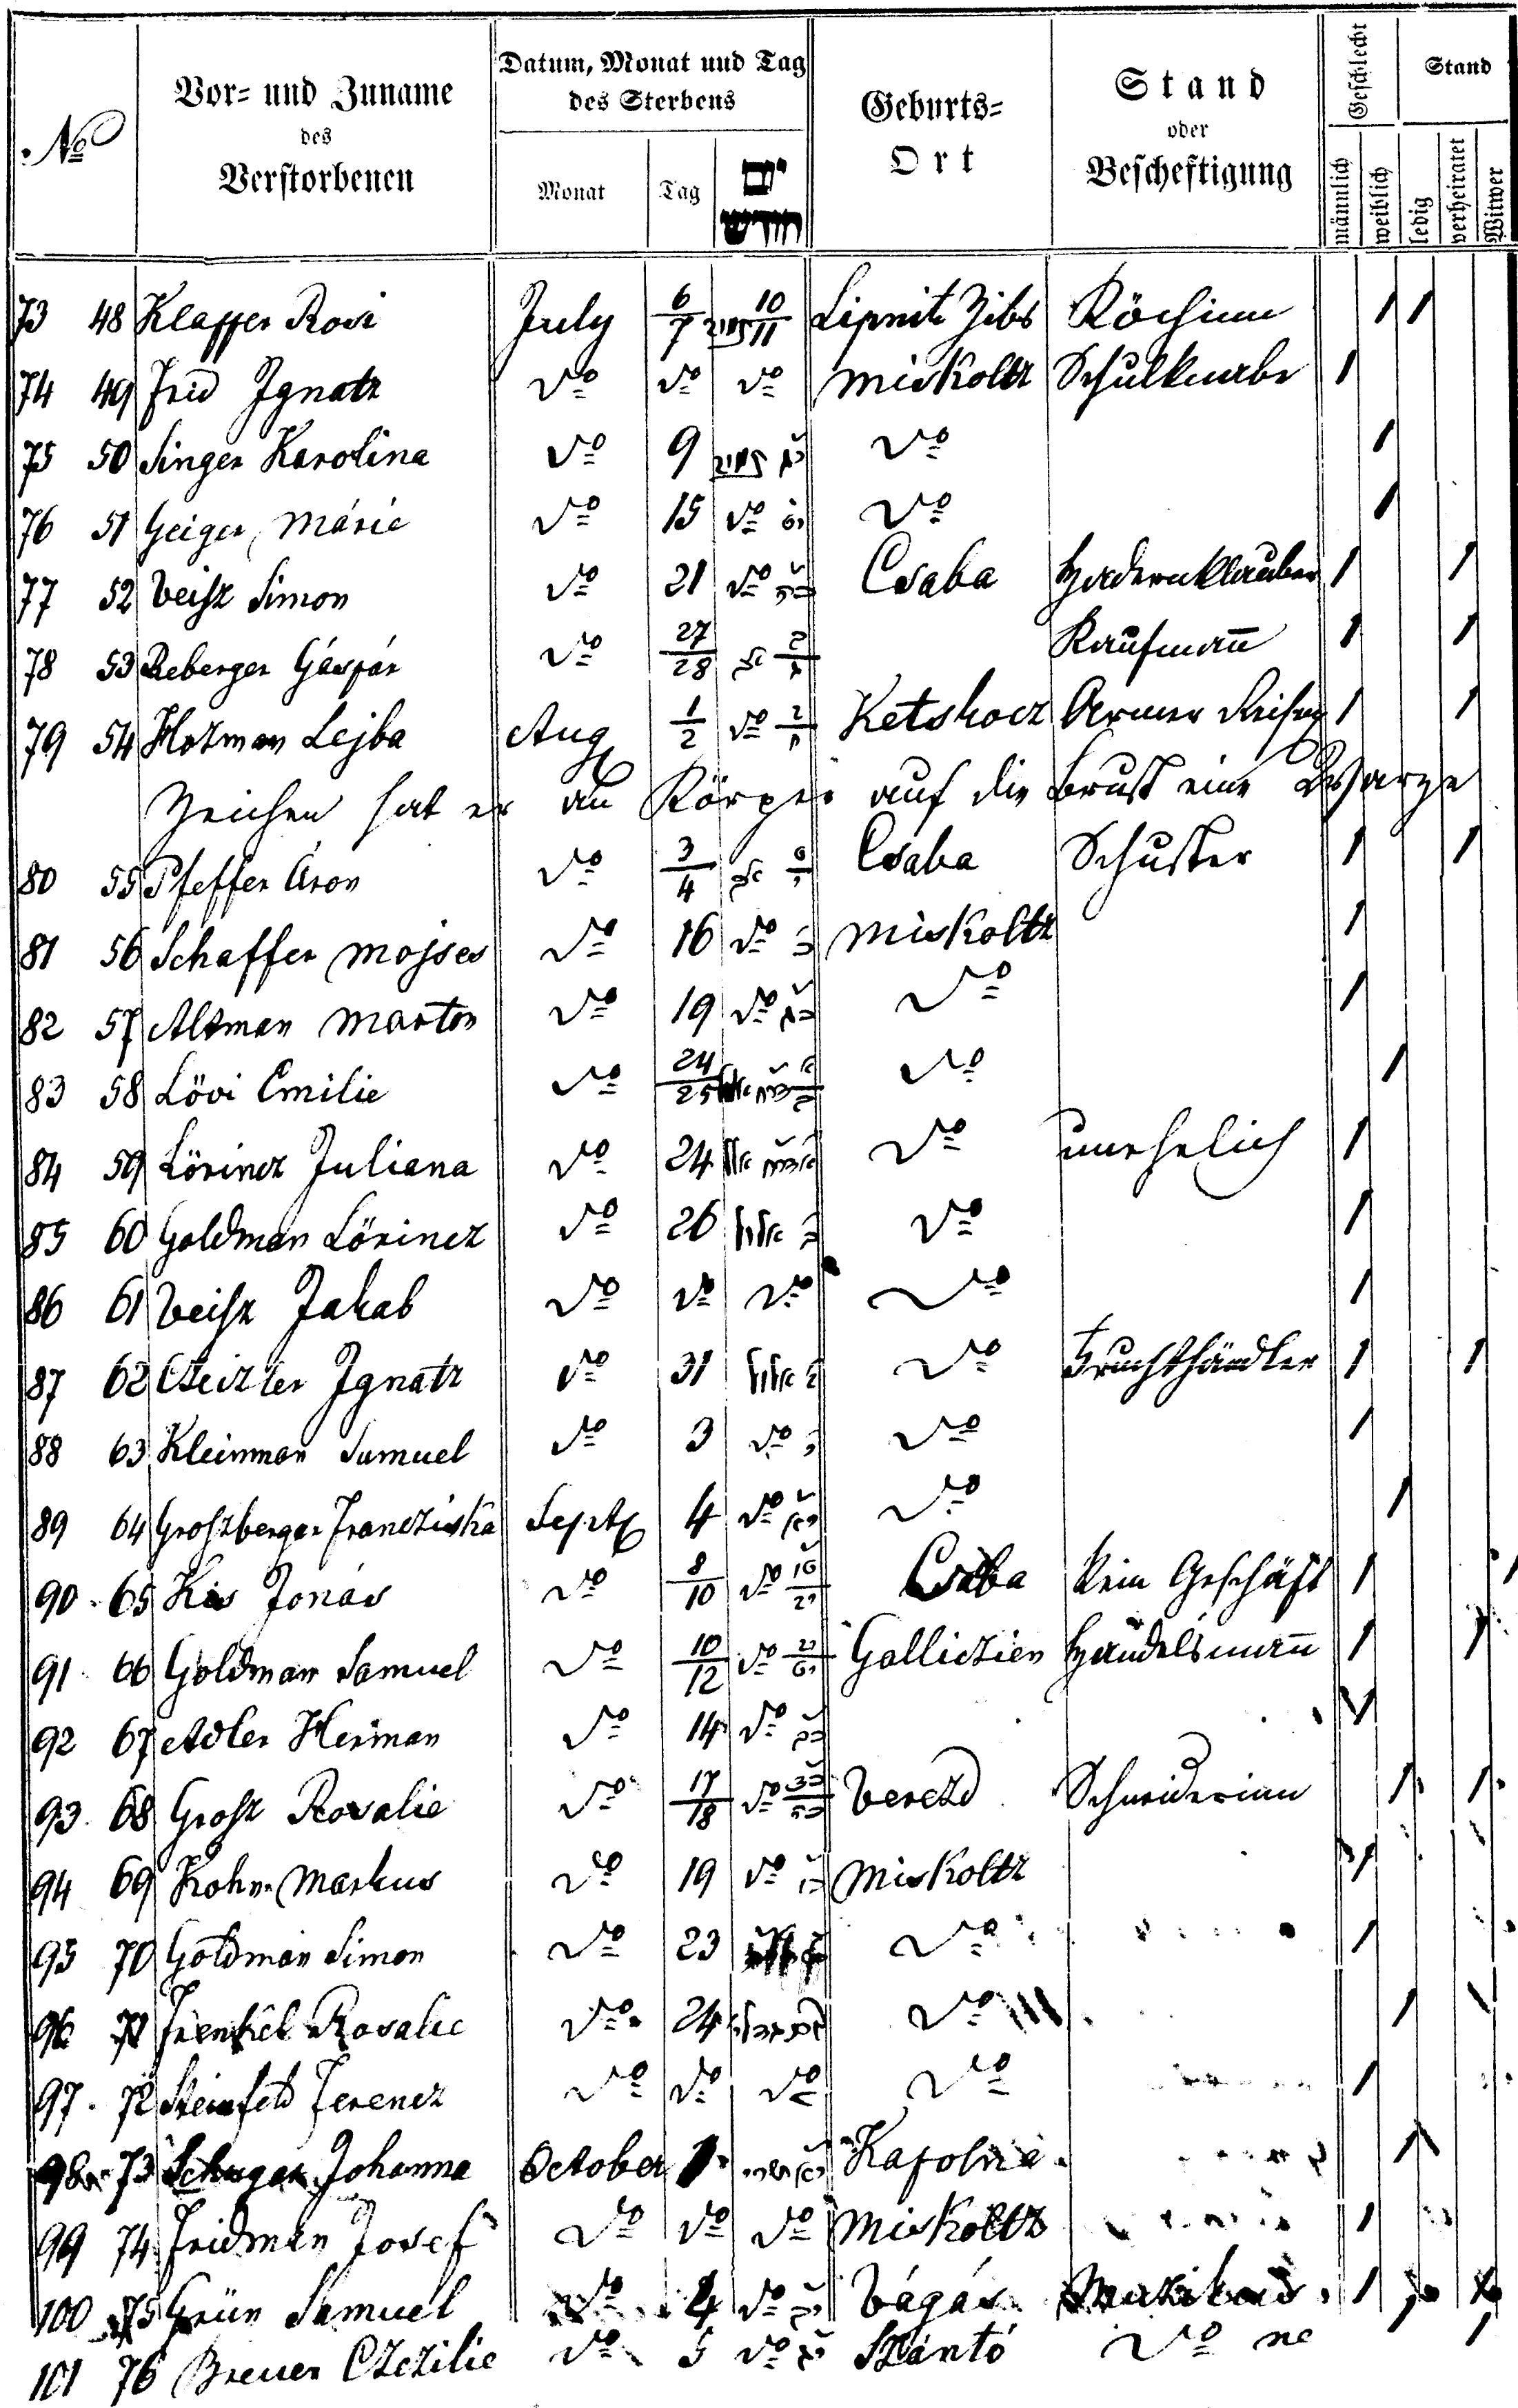 № Vor- und Zuname des Verstorbenen Datum, Monat und Tag des Sterbens Monat Tag Geburts-Ort Stand oder Bescheftigung Geschlecht männlich weiblich Stand ledig verheiratet Witwer
73 48 Klapper Rosi July 6/7 10/11 Lipnitz Zibs Köchinn
74 49 Frid Ignatz do do do Miskoltz Schulknabe
75 50 Singer Karolina do 9 do
76 51 Geiger Márie do 15 do do
77 52 Veisz Simon do 21 do Csaba Hadernklauber
78 53 Reberger Gáspár do 27/28 Kaufmañ
79 54 Hozman Lejba Aug 1/2 do Ketshocz Armer
Zeichen hat er am Körper auf die Brust eine Warze
80 55 Pfeffer Áron do 3/4 Csaba Schuster
81 56 Schaffer Mojses do 16 do Miskoltz
82 57 Altman Marton do 19 do do
83 58 Lövi Emilie do 24/25 do
84 59 Lörincz Juliana do 24 do unehelich
85 60 Goldman Lörincz do 26 do
86 61 Veisz Jakab do do do do
87 62 Czeizler Ignatz do 31 do Fruchthändler
88 63 Kleinman Samuel do 3 do do
89 64 Groszberger Francziska Sept 4 do do
90 65 Kis Jonás do 8/10 do Csaba Kein Geschäft
91 66 Goldman Samuel do 10/12 do Galliczien Handelsmañ
92 67 Adler Herman do 14 do
93 68 Grosz Rosalie do 17/18 do Verezd Schneiderinn
94 69 Kohn Markus do 19 do Miskoltz
95 70 Goldman Simon do 23 do
96 71 Frenkel Rosalie do 24 do
97 72 Steinfeld Ferencz do do do do
98 73 Johanna October Kapolna
99 74 Fridman Josef do do do Miskoltz
100 75 Grün Samuel do 4 do Vágás
101 76 Breuer Czezilie do 5 do Szántó do ne